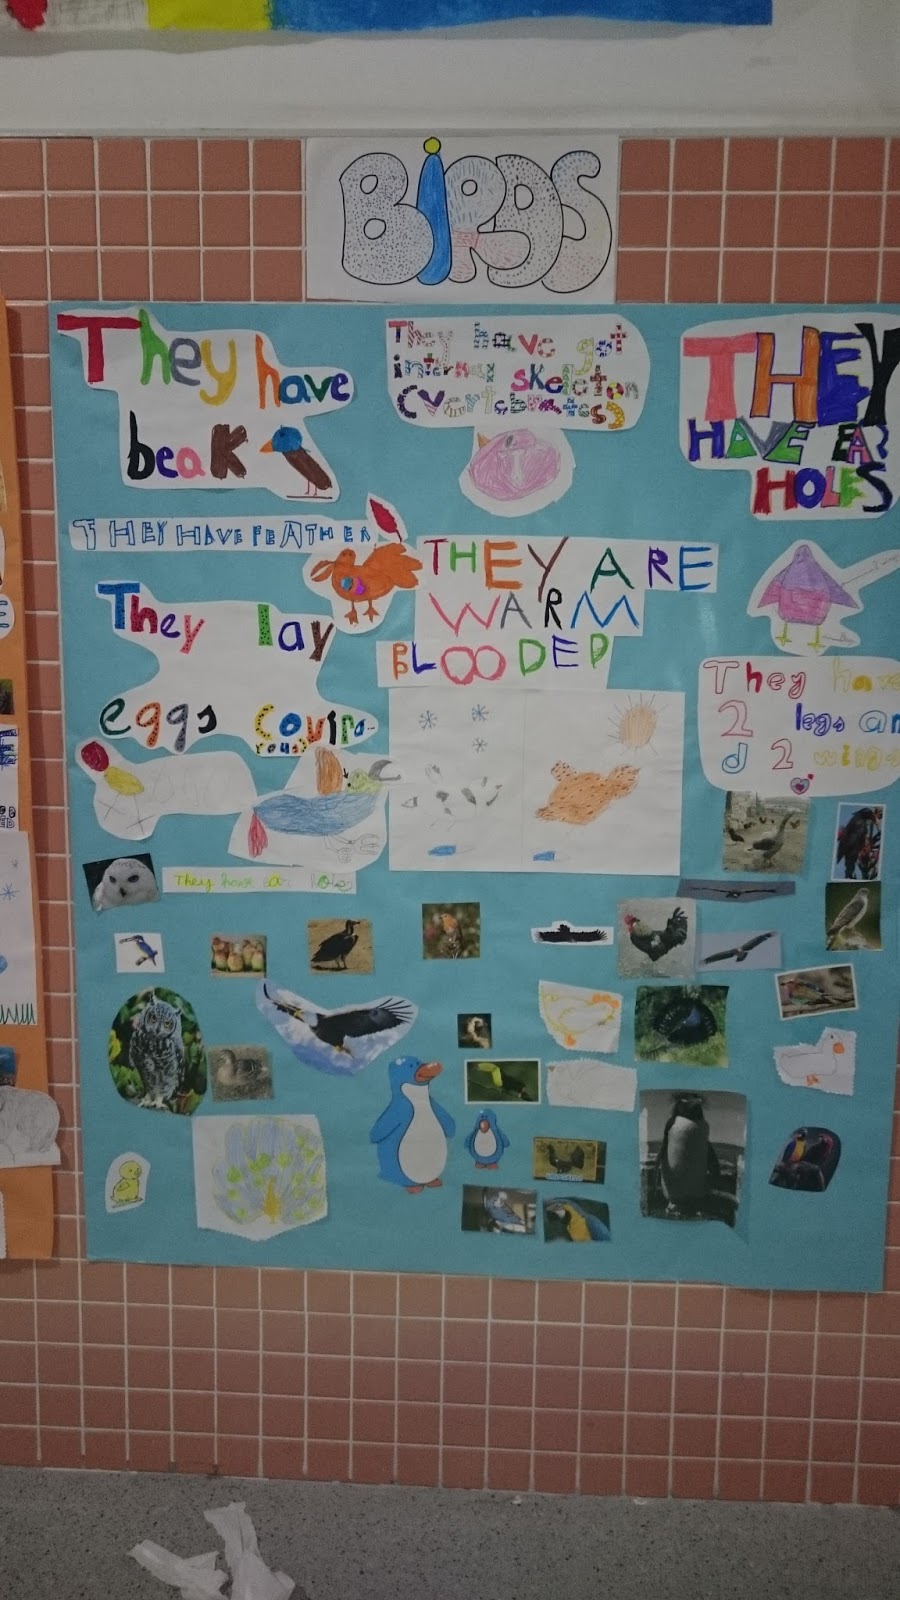 BiRDS
They have
beak
They have got
internax skeleton
(vertebrates)
THEY
HAVE EAR
HOLES
THEY HAVE FEATHER
THEY ARE
WARM
BLOODED
They lay
eggs
They have
2 legs an
d 2 wings
They have ear holes